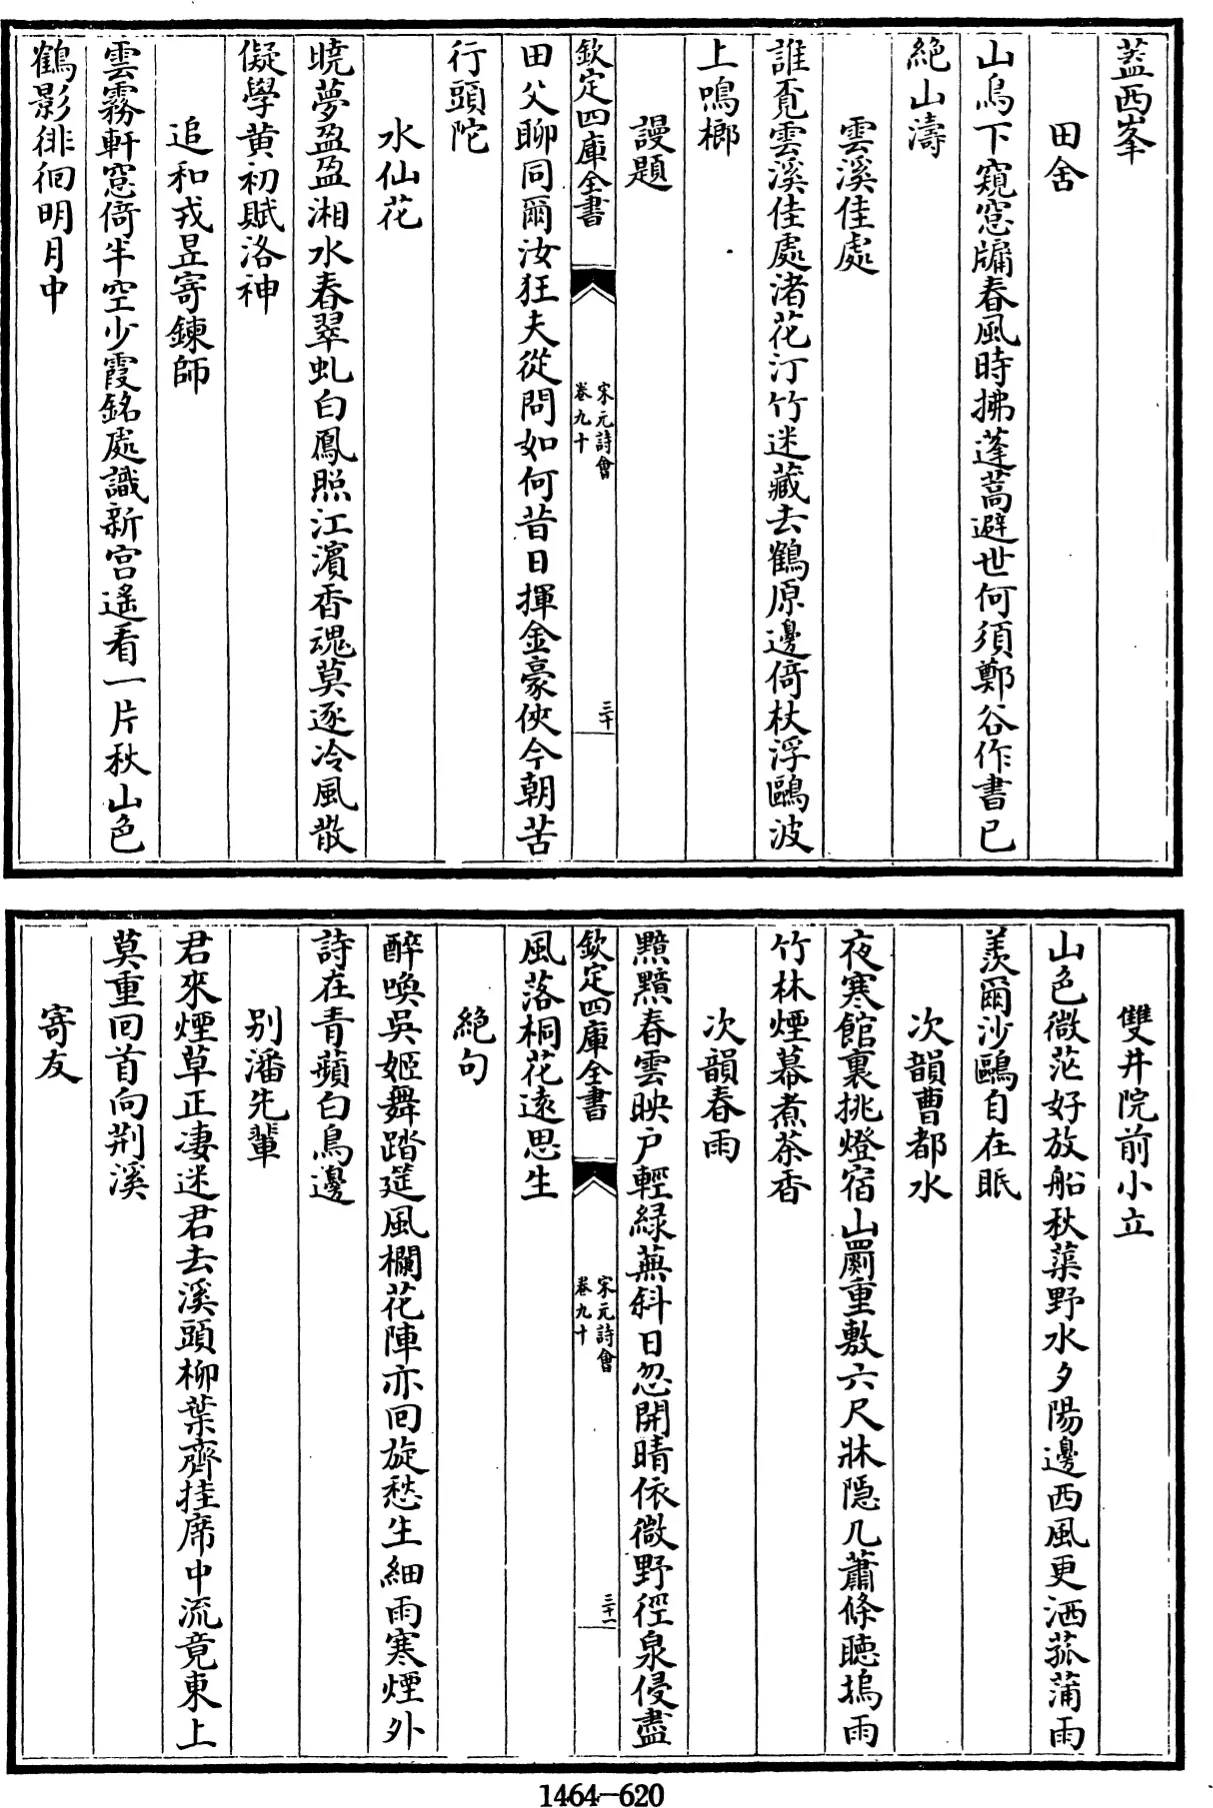 蓋西峯
田舍
山鳥下窺窓牖春風時拂蓬蒿避世何須鄭谷作書已
絶山濤
雲溪佳處
誰覔雲溪佳處渚花汀竹迷藏去鶴原邊倚杖浮鷗波
上鳴榔
謾題
欽定四庫全書
宋元詩會
卷九十
三十
田父聊同爾汝狂夫從問如何昔日揮金豪俠今朝苦
行頭陀
水仙花
曉夢盈盈湘水春翠虬白鳳照江濵香魂莫逐冷風散
儗學黄初賦洛神
追和戎昱寄鍊師
雲霧軒窓倚半空少霞銘處識新宫遥看一片秋山色
鶴影徘徊明月中
雙井院前小立
山色微茫好放船秋蕖野水夕陽邊西風更洒菰蒲雨
羨爾沙鷗自在眠
次韻曹都水
夜寒館裏挑燈宿山罽重敷六尺牀隠几蕭條聽塢雨
竹林煙幕煮茶香
次韻春雨
黯黯春雲映户輕緑蕪斜日忽開晴依微野徑泉侵盡
欽定四庫全書
宋元詩會
卷九十
三十一
風落桐花遠思生
絶句
醉喚吳姬舞踏筵風欄花陣亦回旋愁生細雨寒煙外
詩在青蘋白鳥邊
别潘先輩
君來煙草正凄迷君去溪頭柳葉齊挂席中流竟東上
莫重回首向荆溪
寄友
1464—620